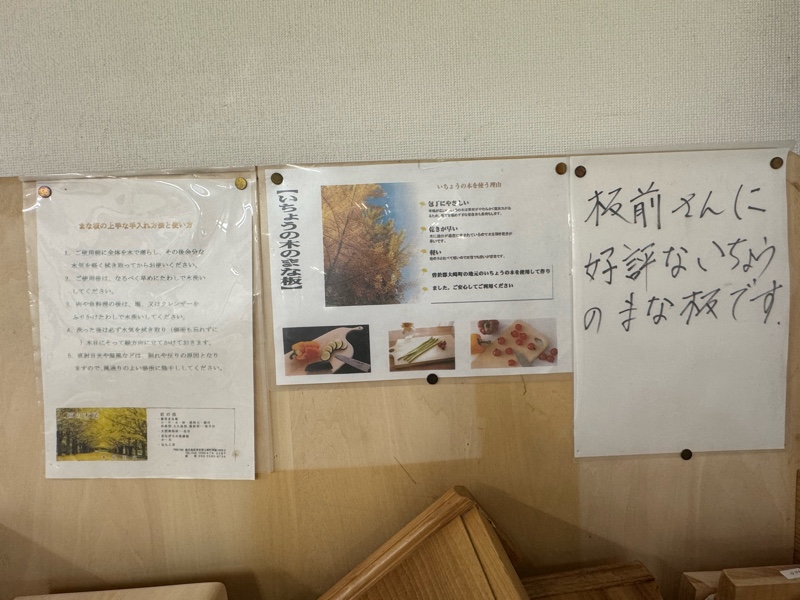 まな板の上手な手入れ方法と使い方
1. ご使用前に全体を水で濡らし、その後余分な
水気を軽く拭き取ってからお使いください。
2. ご使用後は、なるべく早めにたわしで水洗い
してください。
3. 肉や魚料理の後は、塩、又はクレンザーか
ふりかけたわしで水洗いしてください。
4. 洗った後は必ず水気を拭き取り（側面も忘れずに
）木目にそって縦方向に立てかけておきます。
5. 直射日光や強風などは、割れや反りの原因となり
ますので、風通りのよい場所に陰干ししてください。
【いちょうの木のまな板】
いちょうの木を使う理由
包丁にやさしい
乾きが早い
軽い
曽於郡大崎町の地元のいちょうの木を使用して作り
ました、ご安心してご利用ください
板前さんに
好評ないちょう
のまな板です.